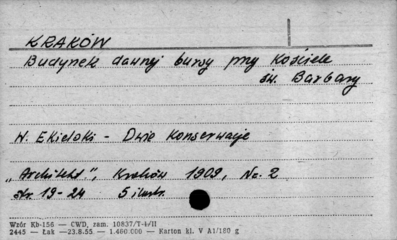 KRAKÓW
Budynek dawnej bursy przy Kościele
św. Barbary
W. Ekielski - Dwie Konserwacje
„Architekt", Kraków 1909, No. 2
str. 19-24 5 ilustr.
Wzór Kb-156 — CWD, zam. 10837/T-4/II
2445 — Łak —23.8.55. — 1.480.000 — Karton kl. V A1/180 g